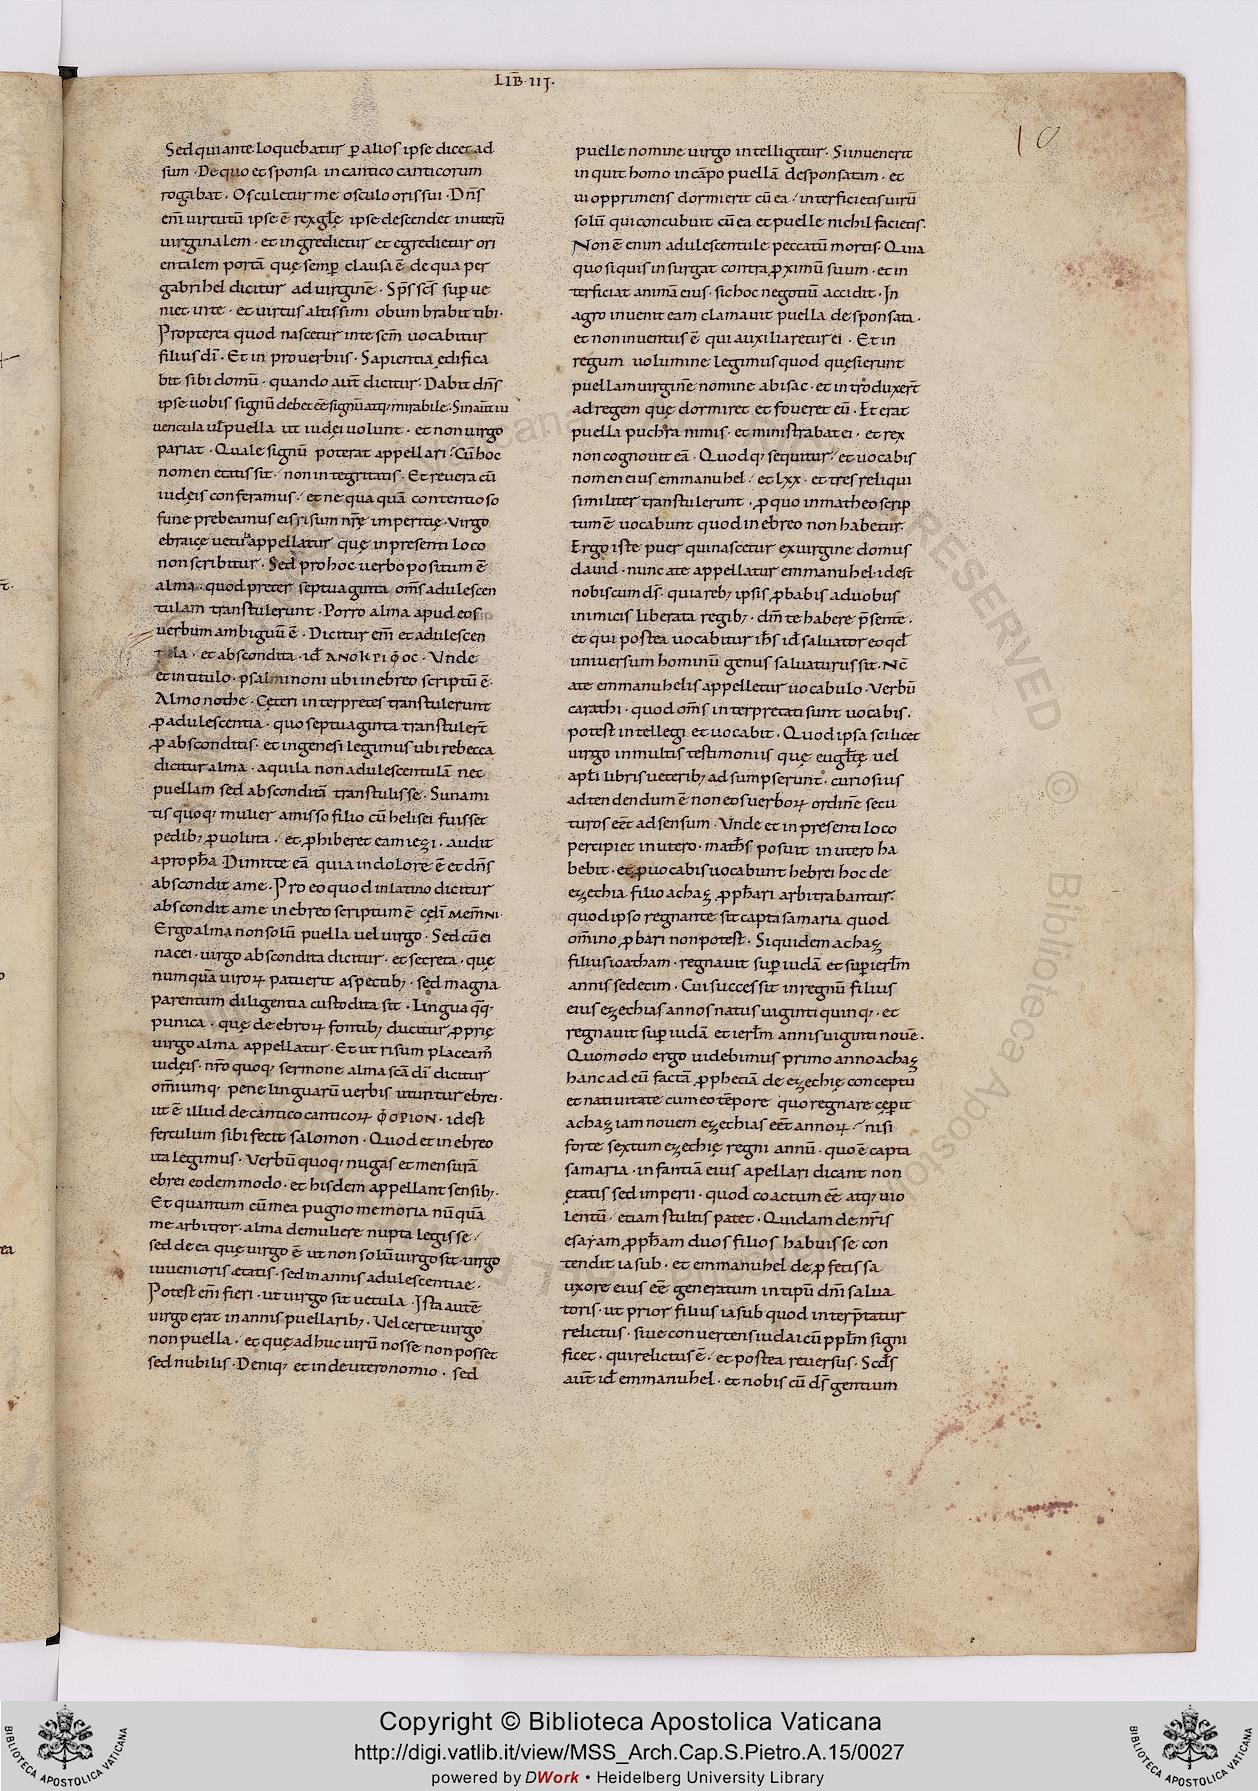 LIB̅·III·
10
Sed qui ante loquebatur ꝑ alios ipse dicet ad
sum · De quo et sponsa in cantico canticorum
rogabat · Osculetur me osculo oris sui · Dn̅s
eni̅ virtutu̅ ipse e̅ rex gl̅e ipse descendet in uteru̅
virginalem · et ingredietur et egredietur ori
entalem porta̅ que̜ semꝑ clausa e̅ de qua per
gabrihel dicitur ad virgine̅ · Sp̅s sc̅s suꝑ ue
niet in te · et virtus altissimi obumbrabit tibi ·
Propterea quod nascetur in te sc̅m uocabitur
filius di̅ · Et in proverbiis · Sapientia e̜difica
bit sibi domu̅ · quando aut̅ dicitur · Dabit dn̅s
ipse uobis signu̅ debet ee̅ signu̅ atq; mirabile · Sin aut̅ iu
vencula ul̅ puella ut iude̜i uolunt · et non virgo
pariat · Quale signu̅ poterat appellari · Cu̅ hoc
nomen etatis sit · non integritatis · Et revera cu̅
iude̜is conferamus · et nequaqua̅ contentioso
fune prebeamus eis risum nr̅e̜ imperitie̜ · virgo
ebraice̜ uetula appellatur que̜ in presenti loco
non scribitur · Sed pro hoc verbo positum e̅
alma · quod preter septuaginta om̅s adulescen
tulam transtulerunt · Porro alma apud eos
verbum ambiguu̅ e̅ · Dicitur eni̅ et adulescen
tula · et abscondita · id̅ ΑΝΟΚΡΙΦΟC · Unde
et in titulo · psalmi noni ubi in ebreo scriptu̅ e̅ ·
Almonothe · Ce̜teri interpretes transtulerunt
ꝓ adulescentia · quo septuaginta transtuler̅t
ꝓ absconditis · et in genesi legimus ubi rebecca
dicitur alma · aquila non adulescentula̅ nec
puellam sed abscondita̅ transtulisse · Sunami
tis quoq; mulier amisso filio cu̅ helisei fuisset
pedib; ꝓuoluta · et ꝓhiberet eam iezi · audit
a proph̅a Dimitte ea̅ quia in dolore e̅ et dn̅s
abscondit a me · Pro eo quod in latino dicitur
abscondit a me in ebreo scriptum e̅ ce̜li̅ MEM̅NI ·
Ergo alma non solu̅ puella vel virgo · Sed cu̅ ei
nacei · virgo abscondita dicitur · et secreta · que̜
numqua̅ uiroꝝ patuerit aspectib; · sed magna
parentum diligentia custodita sit · Lingua q̅q;
punica · que̜ de ebroꝝ fontib; ducitur ꝓprie̜
virgo alma appellatur · Et ut risum placeam̅
iude̜is · nr̅o quoq; sermone alma sca̅ di̅ dicitur
om̅iumq; pene linguaru̅ verbis utuntur ebrei ·
ut e̅ illud de cantico canticoꝝ ΦΟΡΙΟΝ · id est
ferculum sibi fecit salomon · Quod et in ebreo
ita legimus · Verbu̅ quoq; nugas et mensura̅
ebrei eodem modo · et hisdem appellant sensib; ·
Et quantum cu̅ mea pugno memoria nu̅qua̅
me arbitror · alma de muliere nupta legisse ·
sed de ea que̜ virgo e̅ ut non solu̅ virgo sit · virgo
iuvenioris ætatis · sed in annis adulescentiae ·
Potest eni̅ fieri · ut virgo sit vetula · Ista aute̅
virgo erat in annis puellarib; · Vel certe virgo
non puella · et que̜ adhuc uiru̅ nosse non posset
sed nubilis · Deniq; et in deuteronomio · sed
puelle nomine virgo intelligitur · Si invenerit
inquit homo in ca̅po puella̅ desponsatam · et
ui opprimens dormierit cu̅ ea · interficietis uiru̅
solu̅ qui concubuit cu̅ ea et puelle nichil facietis ·
Non e̅ enim adulescentule peccatu̅ mortis · Quia
quo si quis insurgat contra ꝓximu̅ suum · et in
terficiat anima̅ eius · sic hoc negotiu̅ accidit · In
agro invenit eam clamavit puella desponsata ·
et non inventus e̅ qui auxiliaretur ei · Et in
regum uolumine legimus quod que̜sierunt
puellam virgine̅ nomine abisac · et introduxer̅t
ad regem que̜ dormiret et foveret eu̅ · Et erat
puella puchra nimis · et ministrabat ei · et rex
non cognovit ea̅ · Quodq; sequitur · et uocabis
nomen eius emmanuhel · et lxx · et tres reliqui
similiter transtulerunt · ꝓ quo in matheo scrip
tum e̅ uocabunt quod in ebreo non habetur ·
Ergo iste puer qui nascetur ex virgine domus
david · nunc a te appellatur emmanuhel · id est
nobiscum ds̅ · quia reb; ipsis ꝓbabis a duobus
inimicis liberata regib; · dm̅ te habere p̅sente̅ ·
et qui postea uocabitur ih̅s id̅ saluator eo qd̅
universum hominu̅ genus saluaturus sit · Ne̅
a te emmanuhelis appelletur uocabulo · Verbu̅
carathi · quod om̅s interpretati sunt uocabis ·
potest intellegi et uocabit · Quod ipsa scilicet
virgo in multis testimoniis que̜ eugl̅te̜ vel
apl̅i libris veterib; adsumpserunt · curiosius
adtendendum e̅ non eos uerboꝝ ordine̅ secu
turos ee̅t ad sensum · Unde et in presenti loco
percipiet in utero · math̅s posuit in utero ha
bebit · et ꝓ uocabis uocabunt hebrei hoc de
ezechia filio achaz ꝓph̅ari arbitrabantur ·
quod ipso regnante sit capta samaria quod
om̅ino ꝓbari non potest · Siquidem achaz
filius ioatham · regnavit suꝑ iuda̅ et suꝑ ierl̅m
annis sedecim · Cui successit in regnu̅ filius
eius ezechias annos natus viginti quinq; · et
regnavit suꝑ iuda̅ et ierl̅m annis viginti nove̅ ·
Quomodo ergo uidebimus primo anno achaz
hanc ad eu̅ facta̅ ꝓphetia̅ de ezechie̜ conceptu
et nativitate cum eo te̅pore quo regnare ce̜perit
achaz iam novem ezechias ee̅t annoꝝ · nisi
forte sextum ezechie̜ regni annu̅ · quo e̅ capta
samaria · infantia̅ eius apellari dicant non
e̜tatis sed imperii · quod coactum ee̅ atq; uio
lentu̅ · etiam stultis patet · Quidam de nr̅is
esayam ꝓph̅am duos filios habuisse con
tendit iasub · et emmanuhel de ꝓfetissa
uxore eius ee̅ generatum in tipu̅ dn̅i salua
toris · ut prior filius iasub quod interp̅tatur
relictus · sive convertens iudaicu̅ ppl̅m signi
ficet · qui relictus e̅ · et postea reversus · Scd̅s
aut̅ id̅ emmanuhel · et nobiscu̅ ds̅ gentium
Copyright © Biblioteca Apostolica Vaticana
http://digi.vatlib.it/view/MSS_Arch.Cap.S.Pietro.A.15/0027
powered by DWork • Heidelberg University Library